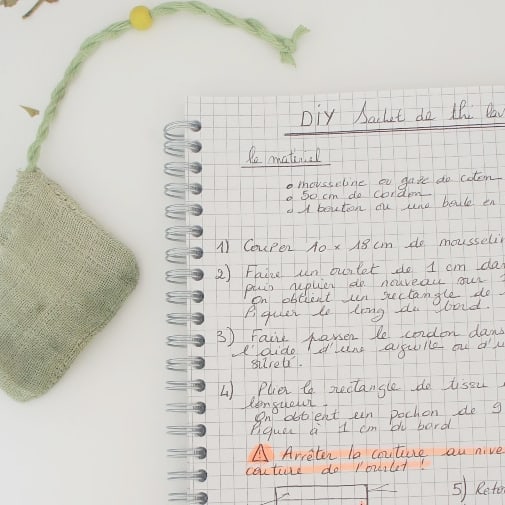 DIY Sachet de thé lav
le matériel
mousseline ou gaze de coton
50 cm de cordon
1 bouton ou une boule en
1) Couper 10 x 18 cm de mousselin
2) Faire un ourlet de 1 cm da
puis replier de nouveau sur
On obtient un rectangle de
Piquer le long du bord.
3) Faire passer le cordon dans
l'aide d'une aiguille ou d'u
sûreté.
4) Plier le rectangle de tissu
longueur.
On obtient un pochon de 9
Piquer à 1 cm du bord
Arrêter la couture au nive
couture de l'ourlet !
5) Reto